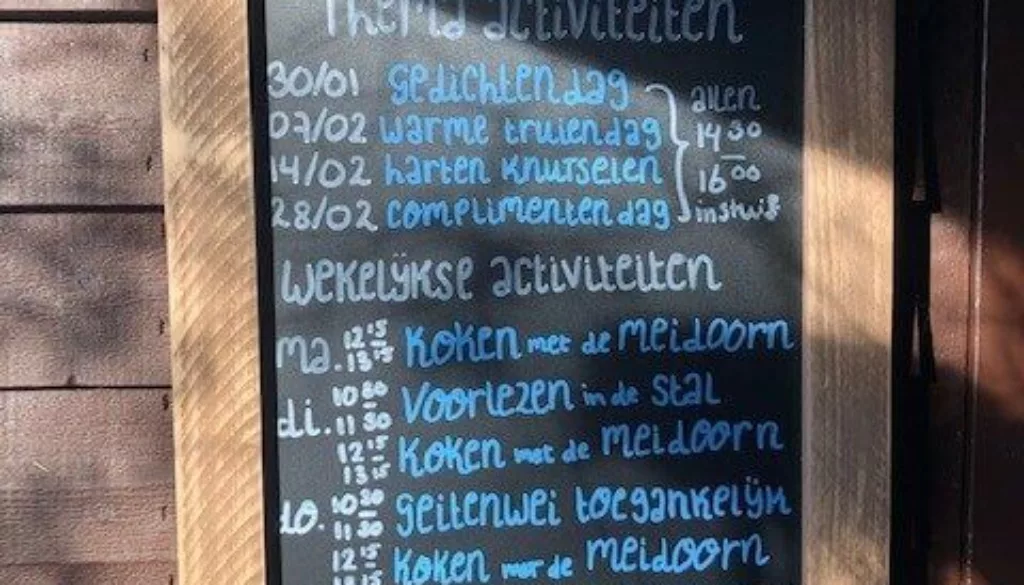 Thema activiteiten
30/01 gedichtendag
07/02 warme truiendag
14/02 harten knutselen
28/02 complimentendag
allen
14 30
–
16 00
instuif
wekelijkse activiteiten
ma. 12 15 – 13 15 koken met de Meidoorn
di. 10 30 – 11 30 Voorlezen in de stal
12 15 – 13 15 koken met de Meidoorn
do. 10 30 – 11 30 geitenwei toegankelijk
12 15 – 13 15 koken met de Meidoorn